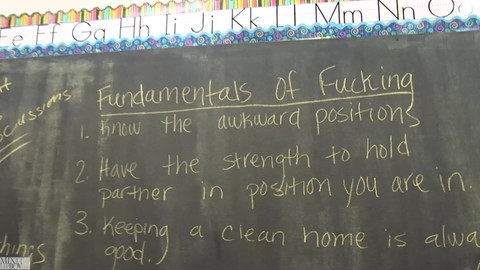 Ee Ff Gg Hh Ii Jj Kk Ll Mm Nn Oo
Fundamentals of Fucking
1. Know the awkward positions
2. Have the strength to hold
partner in position you are in.
3. Keeping a clean home is alwa
good.